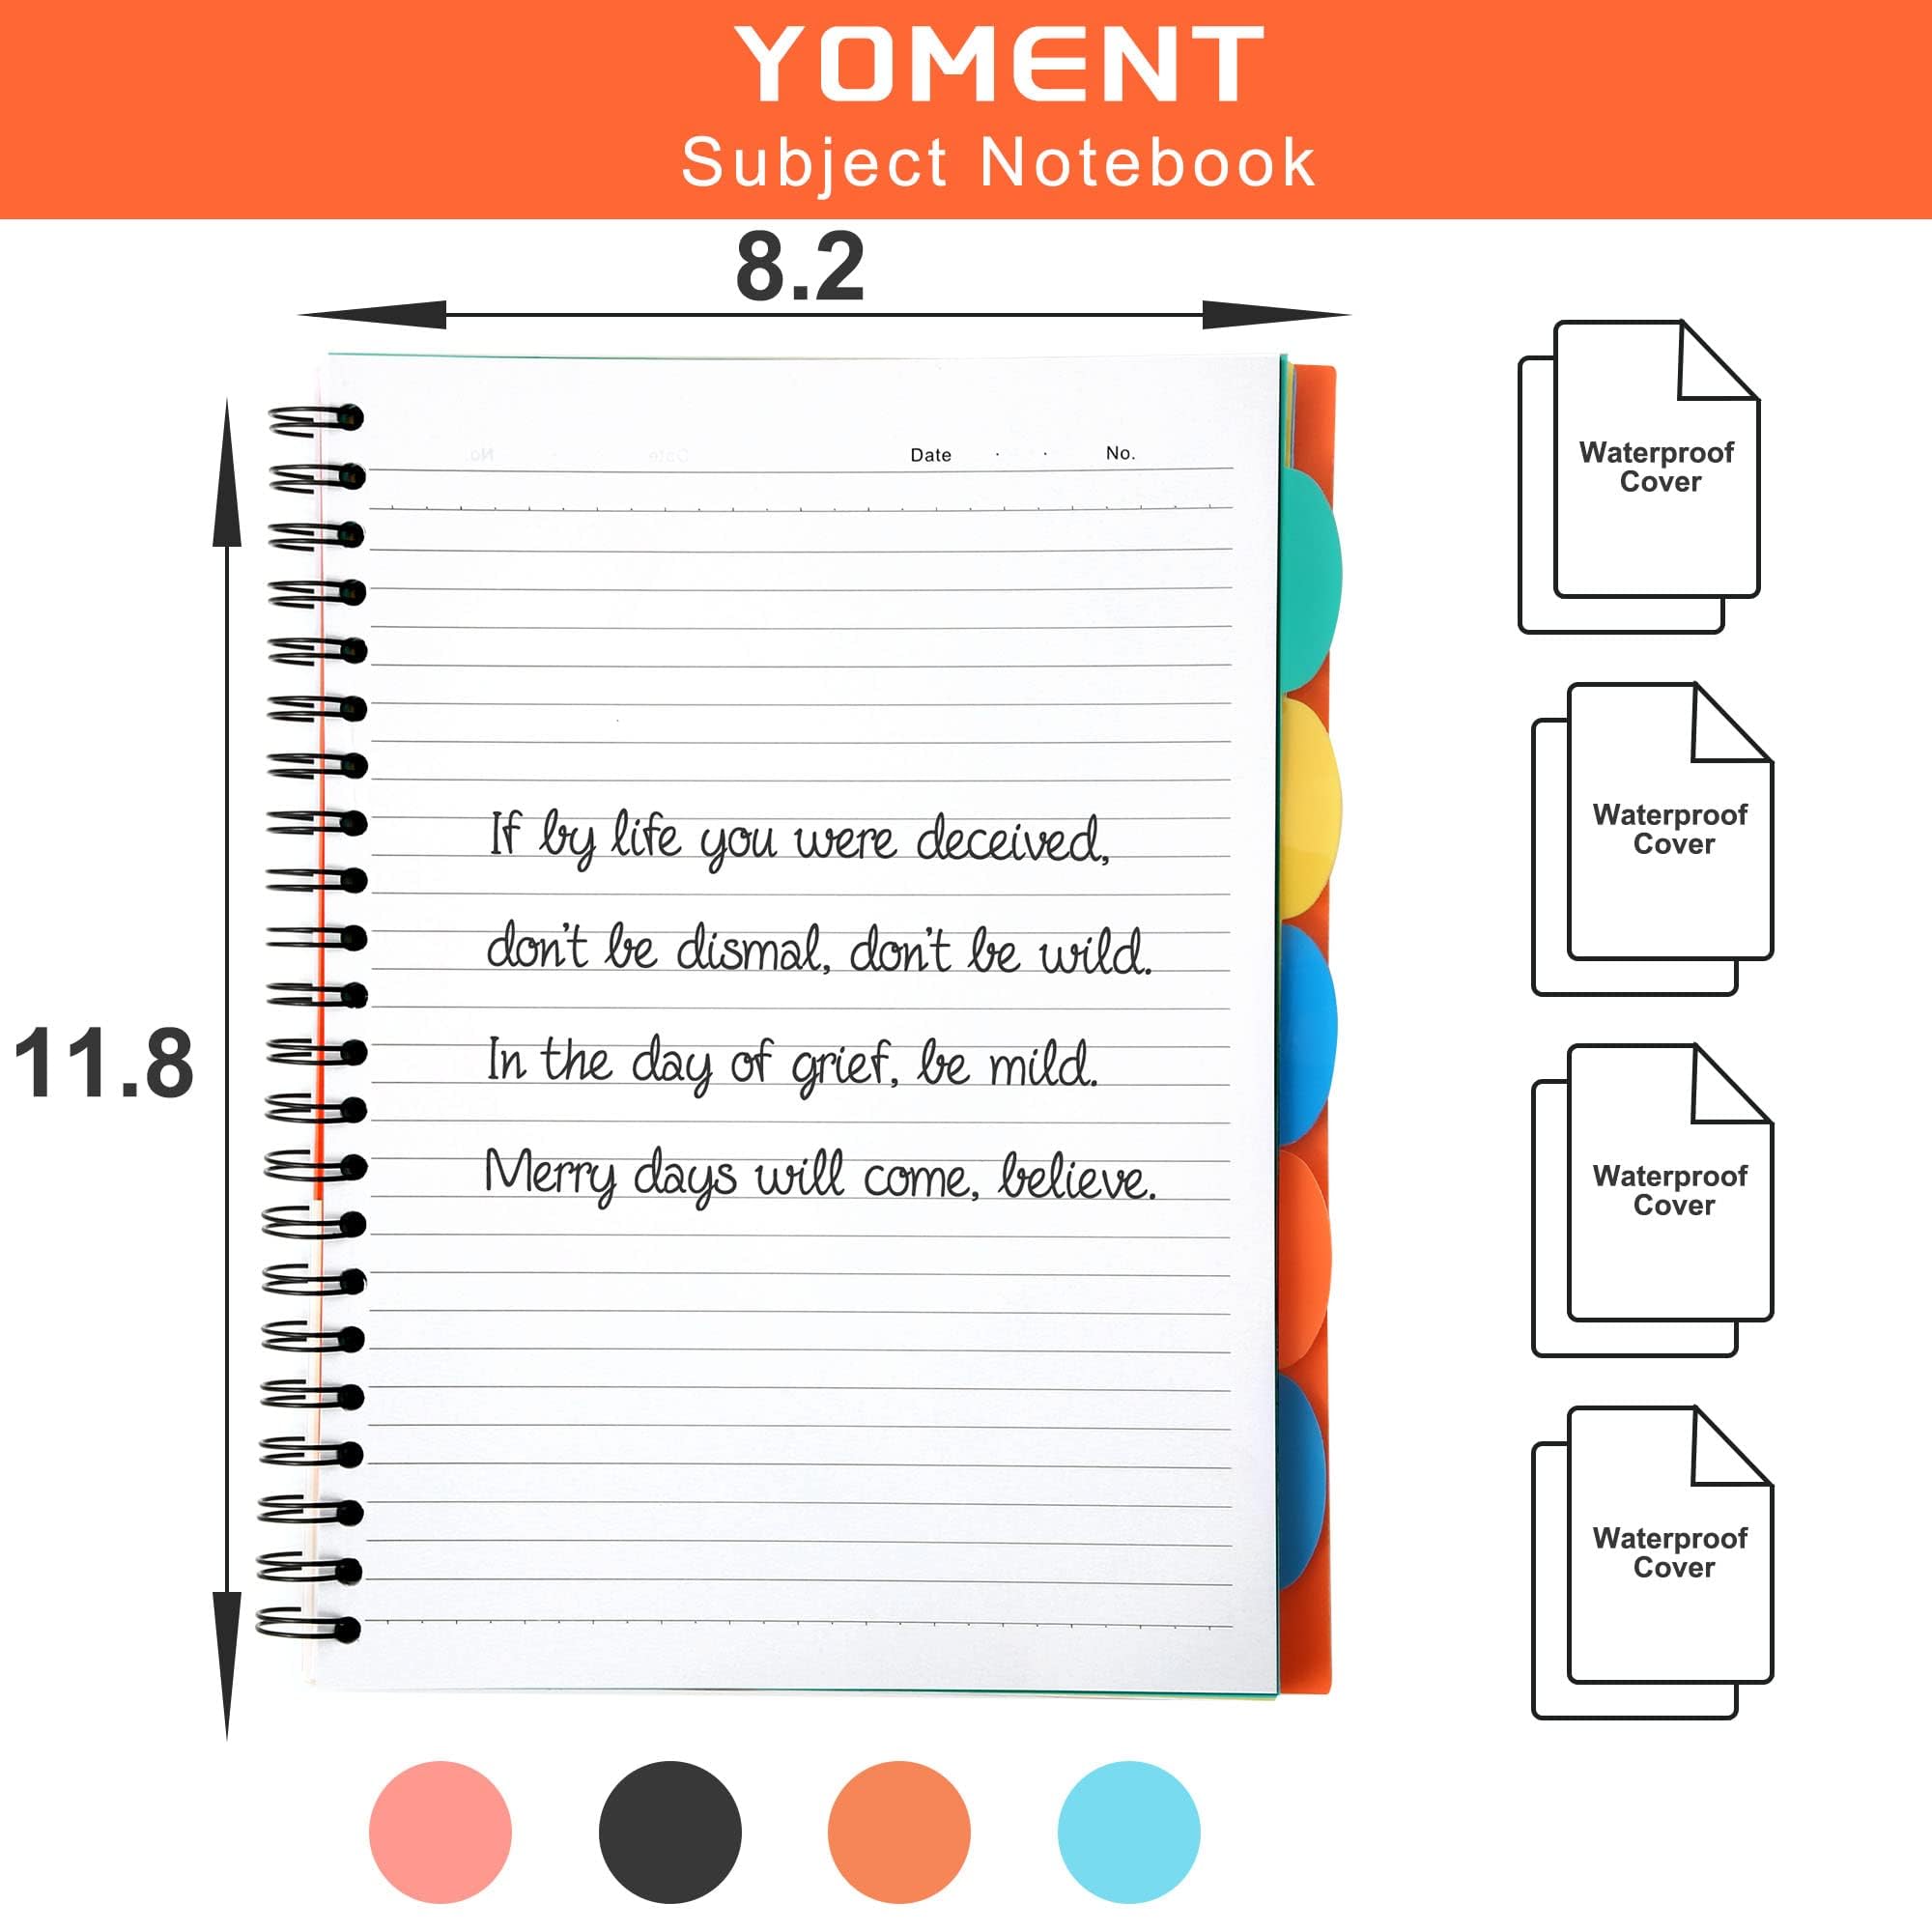 YOMENT
Subject Notebook
8.2
Date . . No.
11.8
If by life you were deceived,
don't be dismal, don't be wild.
In the day of grief, be mild.
Merry days will come, believe.
Waterproof
Cover
Waterproof
Cover
Waterproof
Cover
Waterproof
Cover